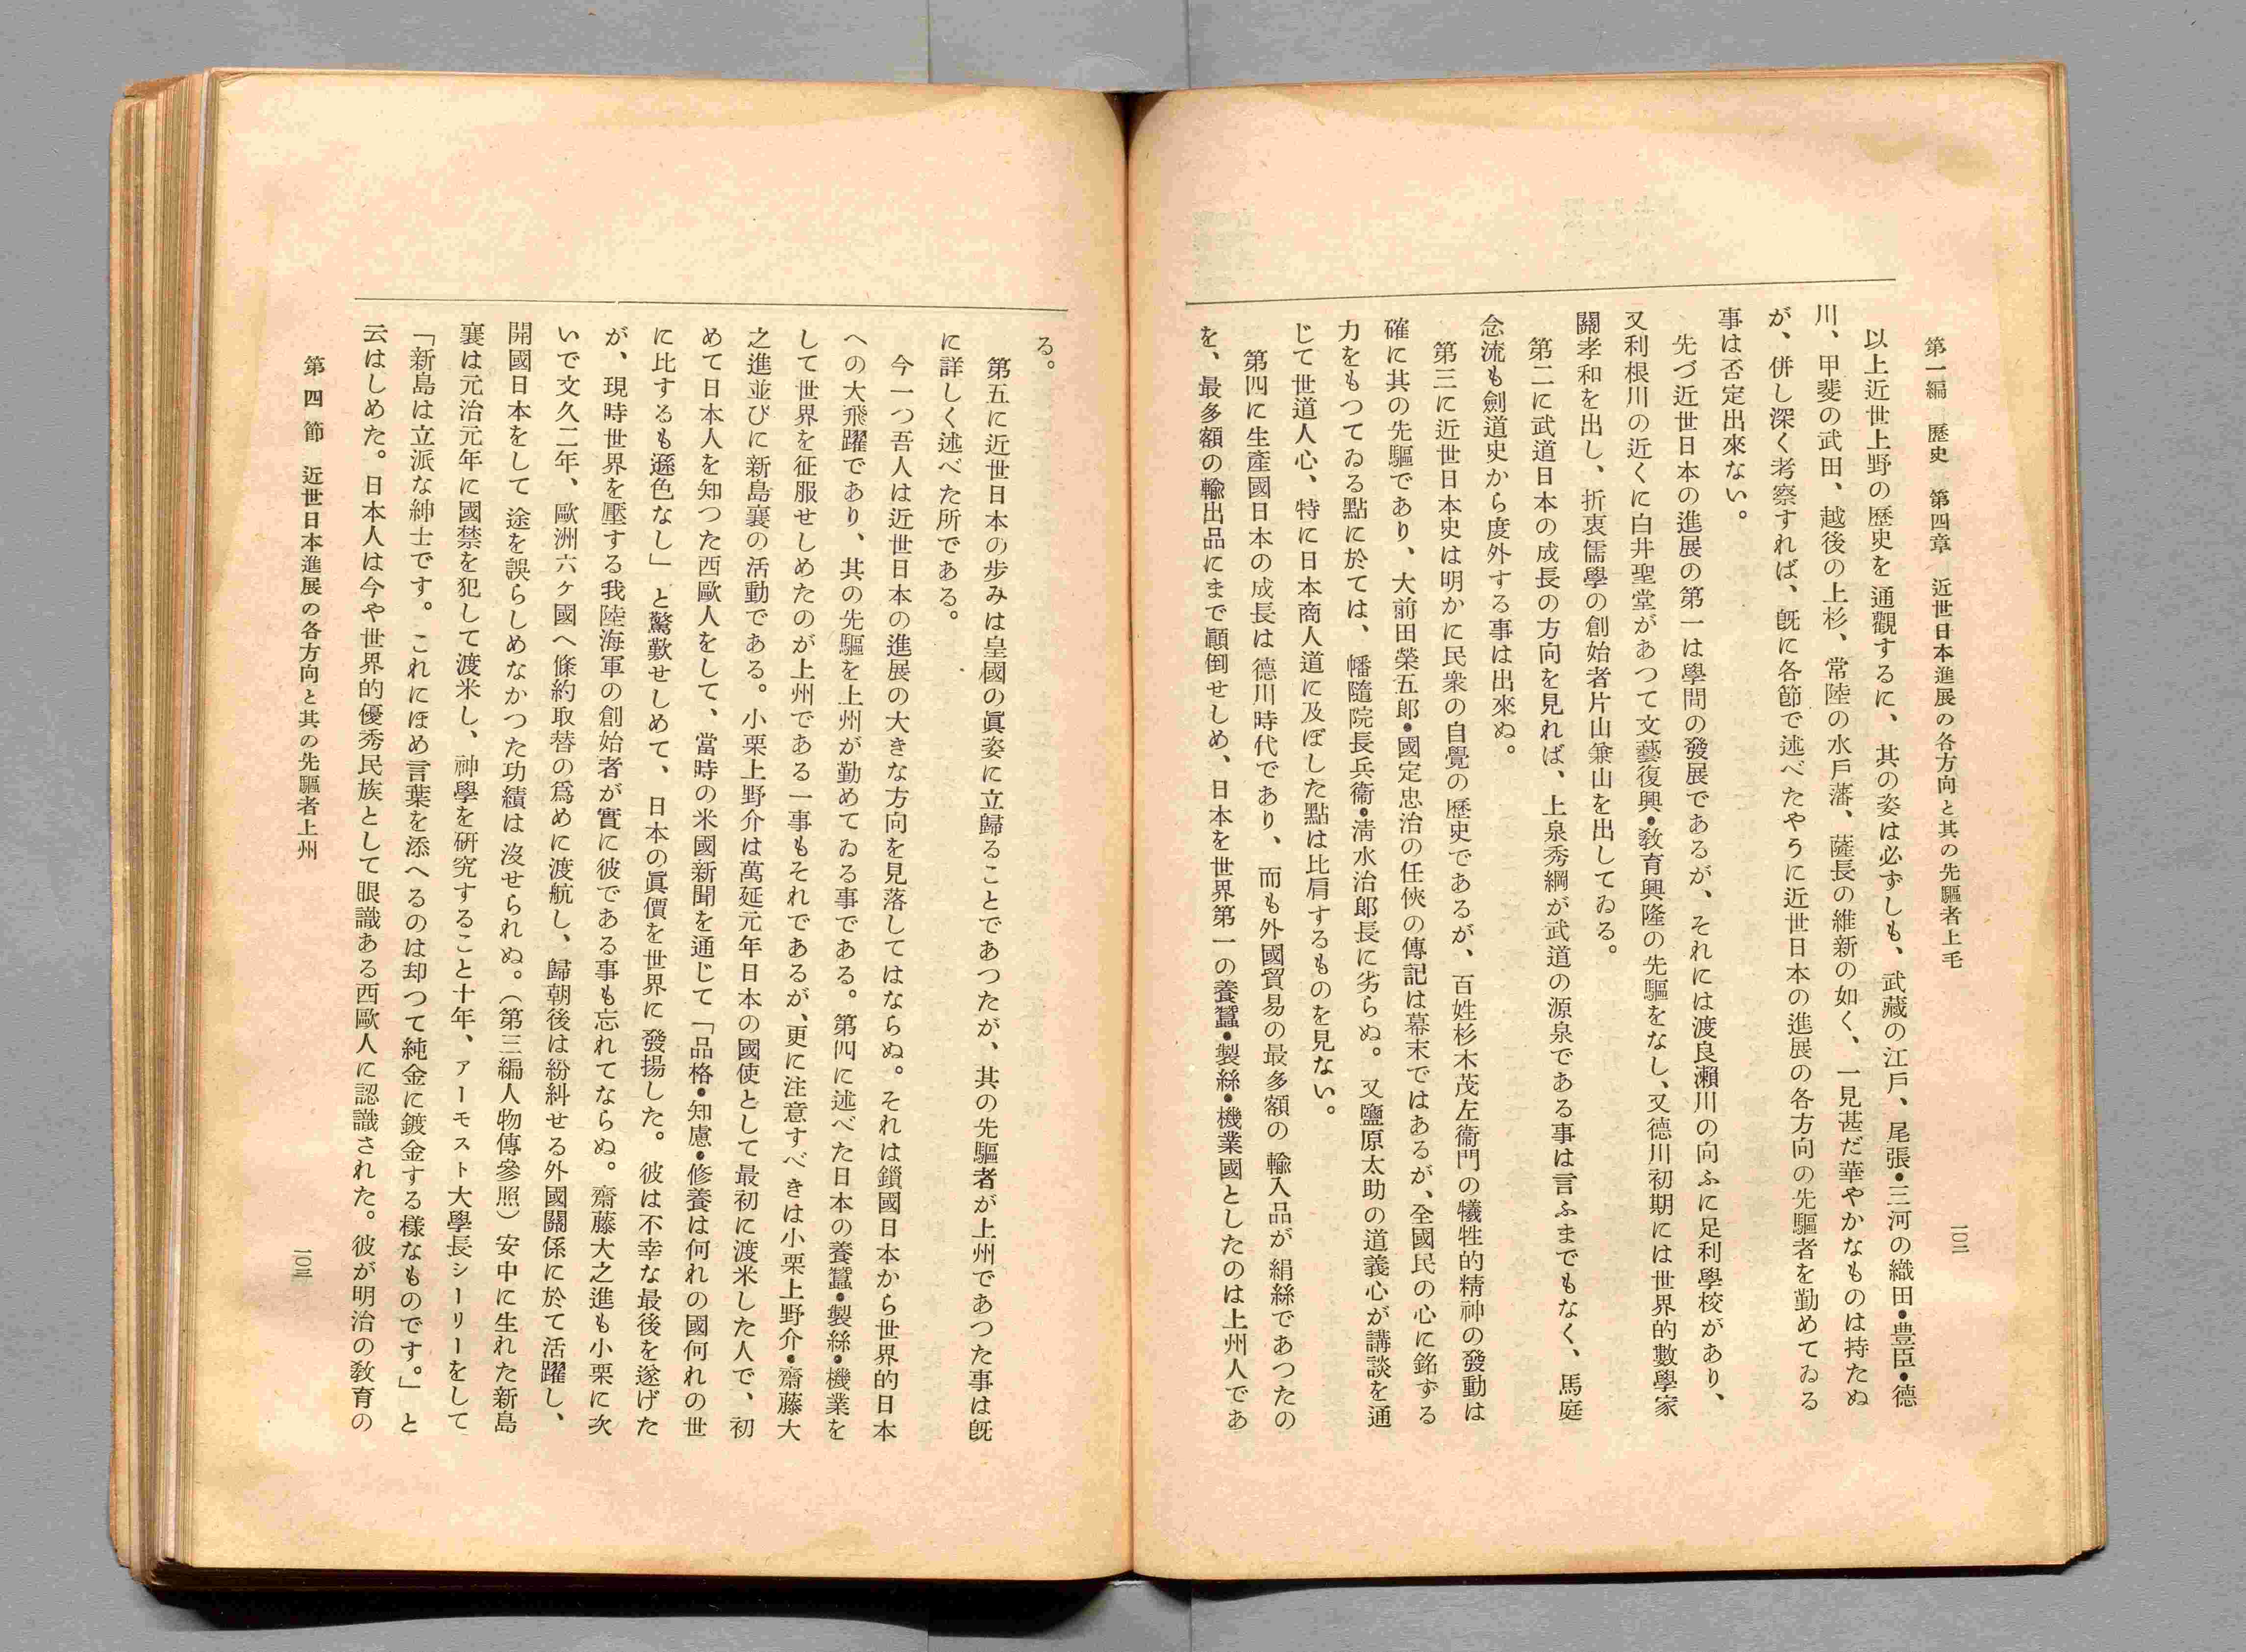 第一編　歴史　第四章　近世日本進展の各方向と其の先驅者上毛
一〇二
以上近世上野の歴史を通觀するに、其の姿は必ずしも、武藏の江戸、尾張・三河の織田・豊臣・德
川、甲斐の武田、越後の上杉、常陸の水戸藩、薩長の維新の如く、一見甚だ華やかなものは持たぬ
が、併し深く考察すれば、既に各節で述べたやうに近世日本の進展の各方向の先驅者を勤めてゐる
事は否定出來ない。
先づ近世日本の進展の第一は學問の發展であるが、それには渡良瀨川の向ふに足利學校があり、
又利根川の近くに白井聖堂があつて文藝復興・敎育興隆の先驅をなし、又德川初期には世界的數學家
關孝和を出し、折衷儒學の創始者片山兼山を出してゐる。
第二に武道日本の成長の方向を見れば、上泉秀綱が武道の源泉である事は言ふまでもなく、馬庭
念流も劍道史から度外する事は出來ぬ。
第三に近世日本史は明かに民衆の自覺の歷史であるが、百姓杉木茂左衞門の犧牲的精神の發動は
確に其の先驅であり、大前田榮五郎・國定忠治の任俠の傳記は幕末ではあるが、全國民の心に銘ずる
力をもつてゐる點に於ては、幡隨院長兵衞・淸水治郎長に劣らぬ。又鹽原太助の道義心が講談を通
じて世道人心、特に日本商人道に及ぼした點は比肩するものを見ない。
第四に生產國日本の成長は德川時代であり、而も外國貿易の最多額の輸入品が絹絲であつたの
を、最多額の輸出品にまで顚倒せしめ、日本を世界第一の養蠶・製絲・機業國としたのは上州人であ
る。
第五に近世日本の步みは皇國の眞姿に立歸ることであつたが、其の先驅者が上州であつた事は既
に詳しく述べた所である。
今一つ吾人は近世日本の進展の大きな方向を見落してはならぬ。それは鎖國日本から世界的日本
への大飛躍であり、其の先驅を上州が勤めてゐる事である。第四に述べた日本の養蠶・製絲・機業を
して世界を征服せしめたのが上州である一事もそれであるが、更に注意すべきは小栗上野介・齋藤大
之進並びに新島襄の活動である。小栗上野介は萬延元年日本の國使として最初に渡米した人で、初
めて日本人を知つた西歐人をして、當時の米國新聞を通じて「品格・知慮・修養は何れの國何れの世
に比するも遜色なし」と驚歎せしめて、日本の眞價を世界に發揚した。彼は不幸な最後を遂げた
が、現時世界を壓する我陸海軍の創始者が實に彼である事も忘れてならぬ。齋藤大之進も小栗に次
いで文久二年、歐洲六ヶ國へ條約取替の爲めに渡航し、歸朝後は紛糾せる外國關係に於て活躍し、
開國日本をして途を誤らしめなかつた功績は沒せられぬ。（第三編人物傳參照）安中に生れた新島
襄は元治元年に國禁を犯して渡米し、神學を硏究すること十年、アーモスト大學長シーリーをして
「新島は立派な紳士です。これにほめ言葉を添へるのは却つて純金に鍍金する樣なものです。」と
云はしめた。日本人は今や世界的優秀民族として眼識ある西歐人に認識された。彼が明治の敎育の
第四節　近世日本進展の各方向と其の先驅者上州
一〇三